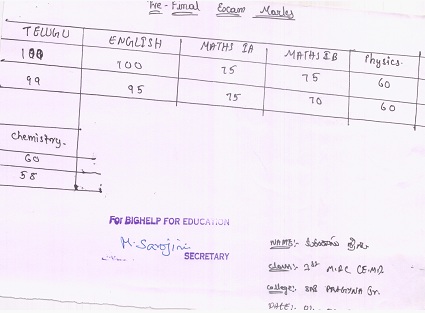 Pre-Final Exam Marks
TELUGU ENGLISH MATHS IA MATHS IB Physics.
100 100 75 75 60
99 95 75 70 60
chemistry.
60
58
For BIGHELP FOR EDUCATION
M. Sarojini
SECRETARY
NAME:-
class:- 1st M.P.C
college:
DATE: